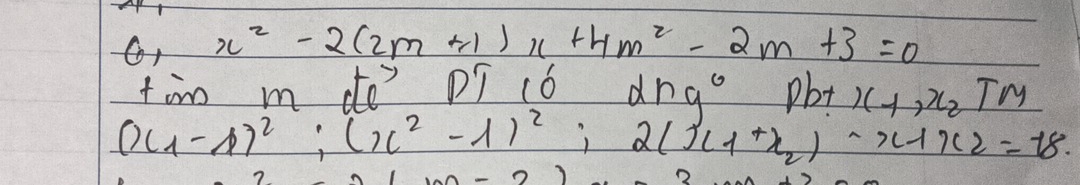 6, x² - 2(2m + 1) x + 4m² - 2m + 3 = 0
tìm m để PT có 2 ng⁰ Pbt x1, x2 TM
(x1 - 1)² ; (x² - 1)² ; 2(x1 + x2) - x1x2 = 18.